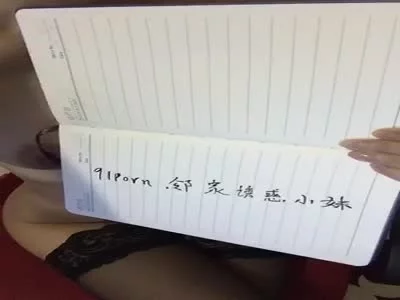 91Porn.邻家诱惑.小妹